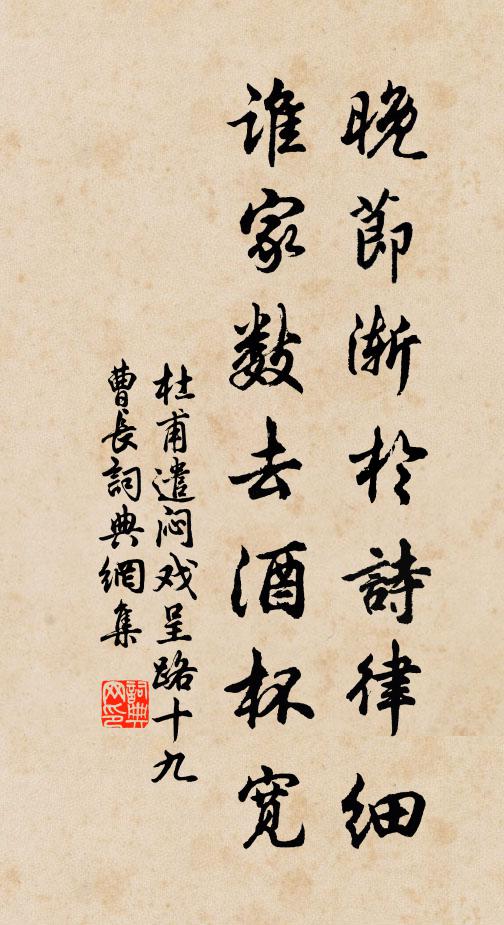 晚節漸於詩律細
誰家數去酒杯寬
杜甫遣闷戏呈路十九
曹長詞典網集
詞典
网印